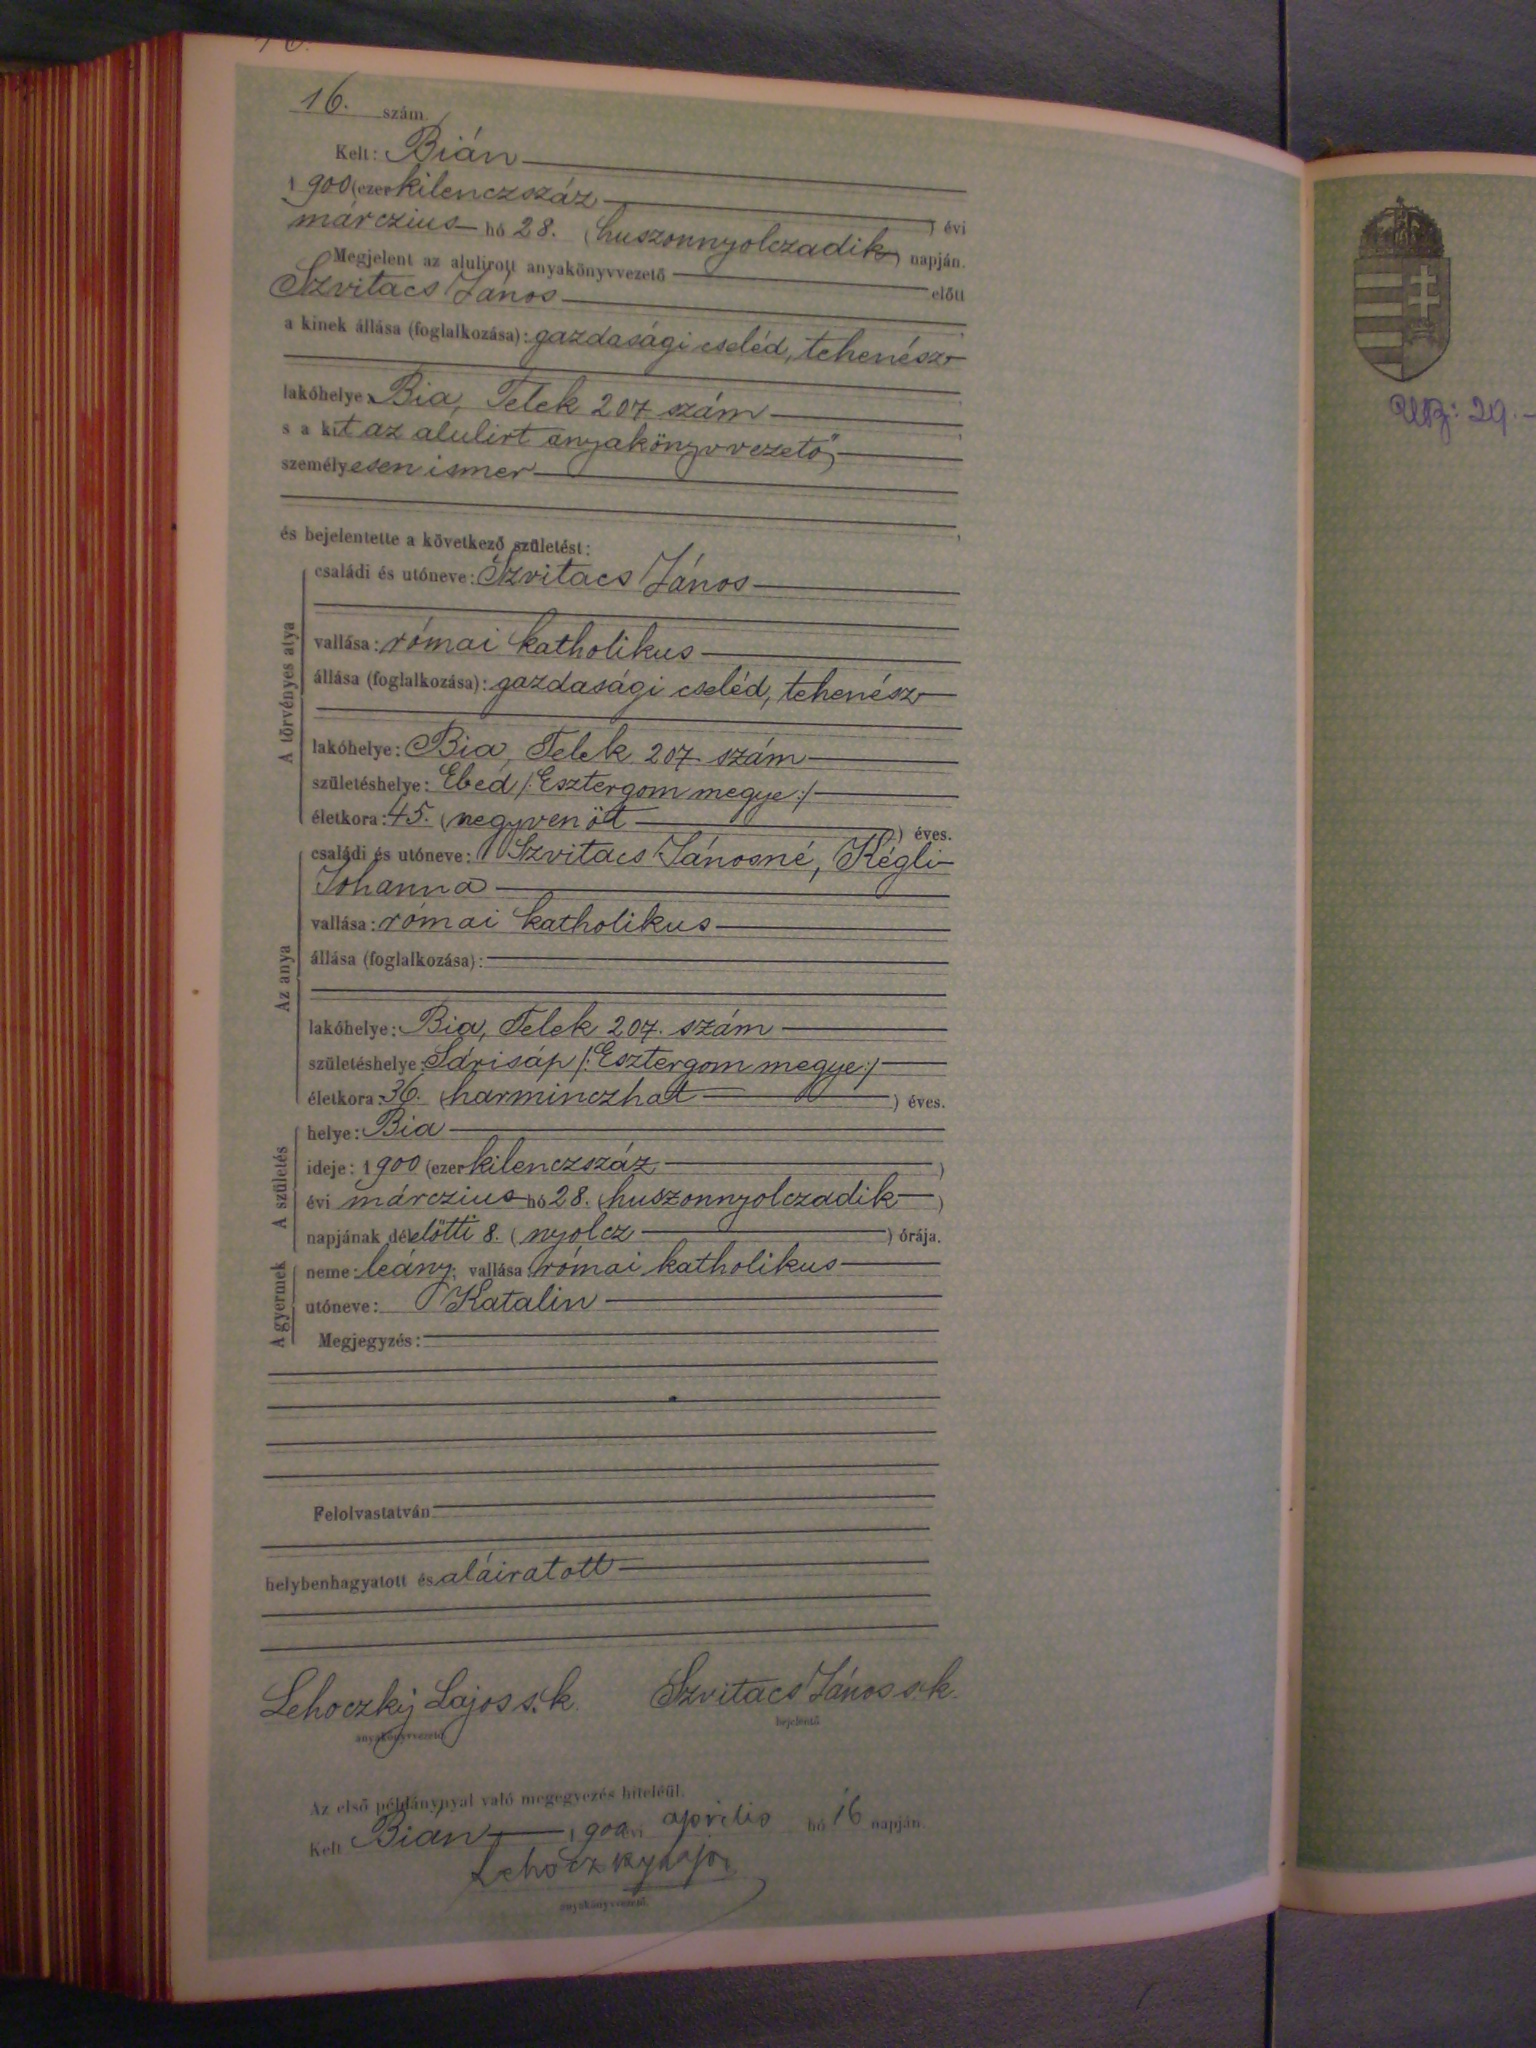 16. szám.
Kelt: Bián
1900 (ezerkilenczszáz ) évi
márczius hó 28. (huszonnyolczadik) napján.
Megjelent az alulirott anyakönyvvezető előtt
Szvitacs János
a kinek állása (foglalkozása): gazdasági cseléd, tehenész
lakóhelye Bia, Telek 207 szám
s a kit az alulirt anyakönyvvezető,
személyesen ismer
és bejelentette a következő születést:
A törvényes atya
családi és utóneve: Szvitacs János
vallása: római katholikus
állása (foglalkozása): gazdasági cseléd, tehenész
lakóhelye: Bia, Telek 207. szám
születéshelye: Ebed /: Esztergom megye :/
életkora: 45. (negyvenöt ) éves.
Az anya
családi és utóneve: Szvitacs Jánosné, Kégli
Johanna
vallása: római katholikus
állása (foglalkozása):
lakóhelye: Bia, Telek 207. szám
születéshelye: Sárisáp /: Esztergom megye :/
életkora: 36. (harminczhat ) éves.
A születés
helye: Bia
ideje: 1900 (ezerkilenczszáz )
évi márczius hó 28. (huszonnyolczadik )
napjának délelötti 8. (nyolcz ) órája.
A gyermek
neme: leány; vallása: római katholikus
utóneve: Katalin
Megjegyzés:
Felolvastatván
helybenhagyatott és aláiratott
Lehoczky Lajos s. k. Szvitacs János s. k.
anyakönyvvezető bejelentő
Az első példánynyal való megegyezés hiteléül.
Kelt Bián 1900 évi aprilis hó 16 napján.
Lehoczky Lajos
anyakönyvvezető